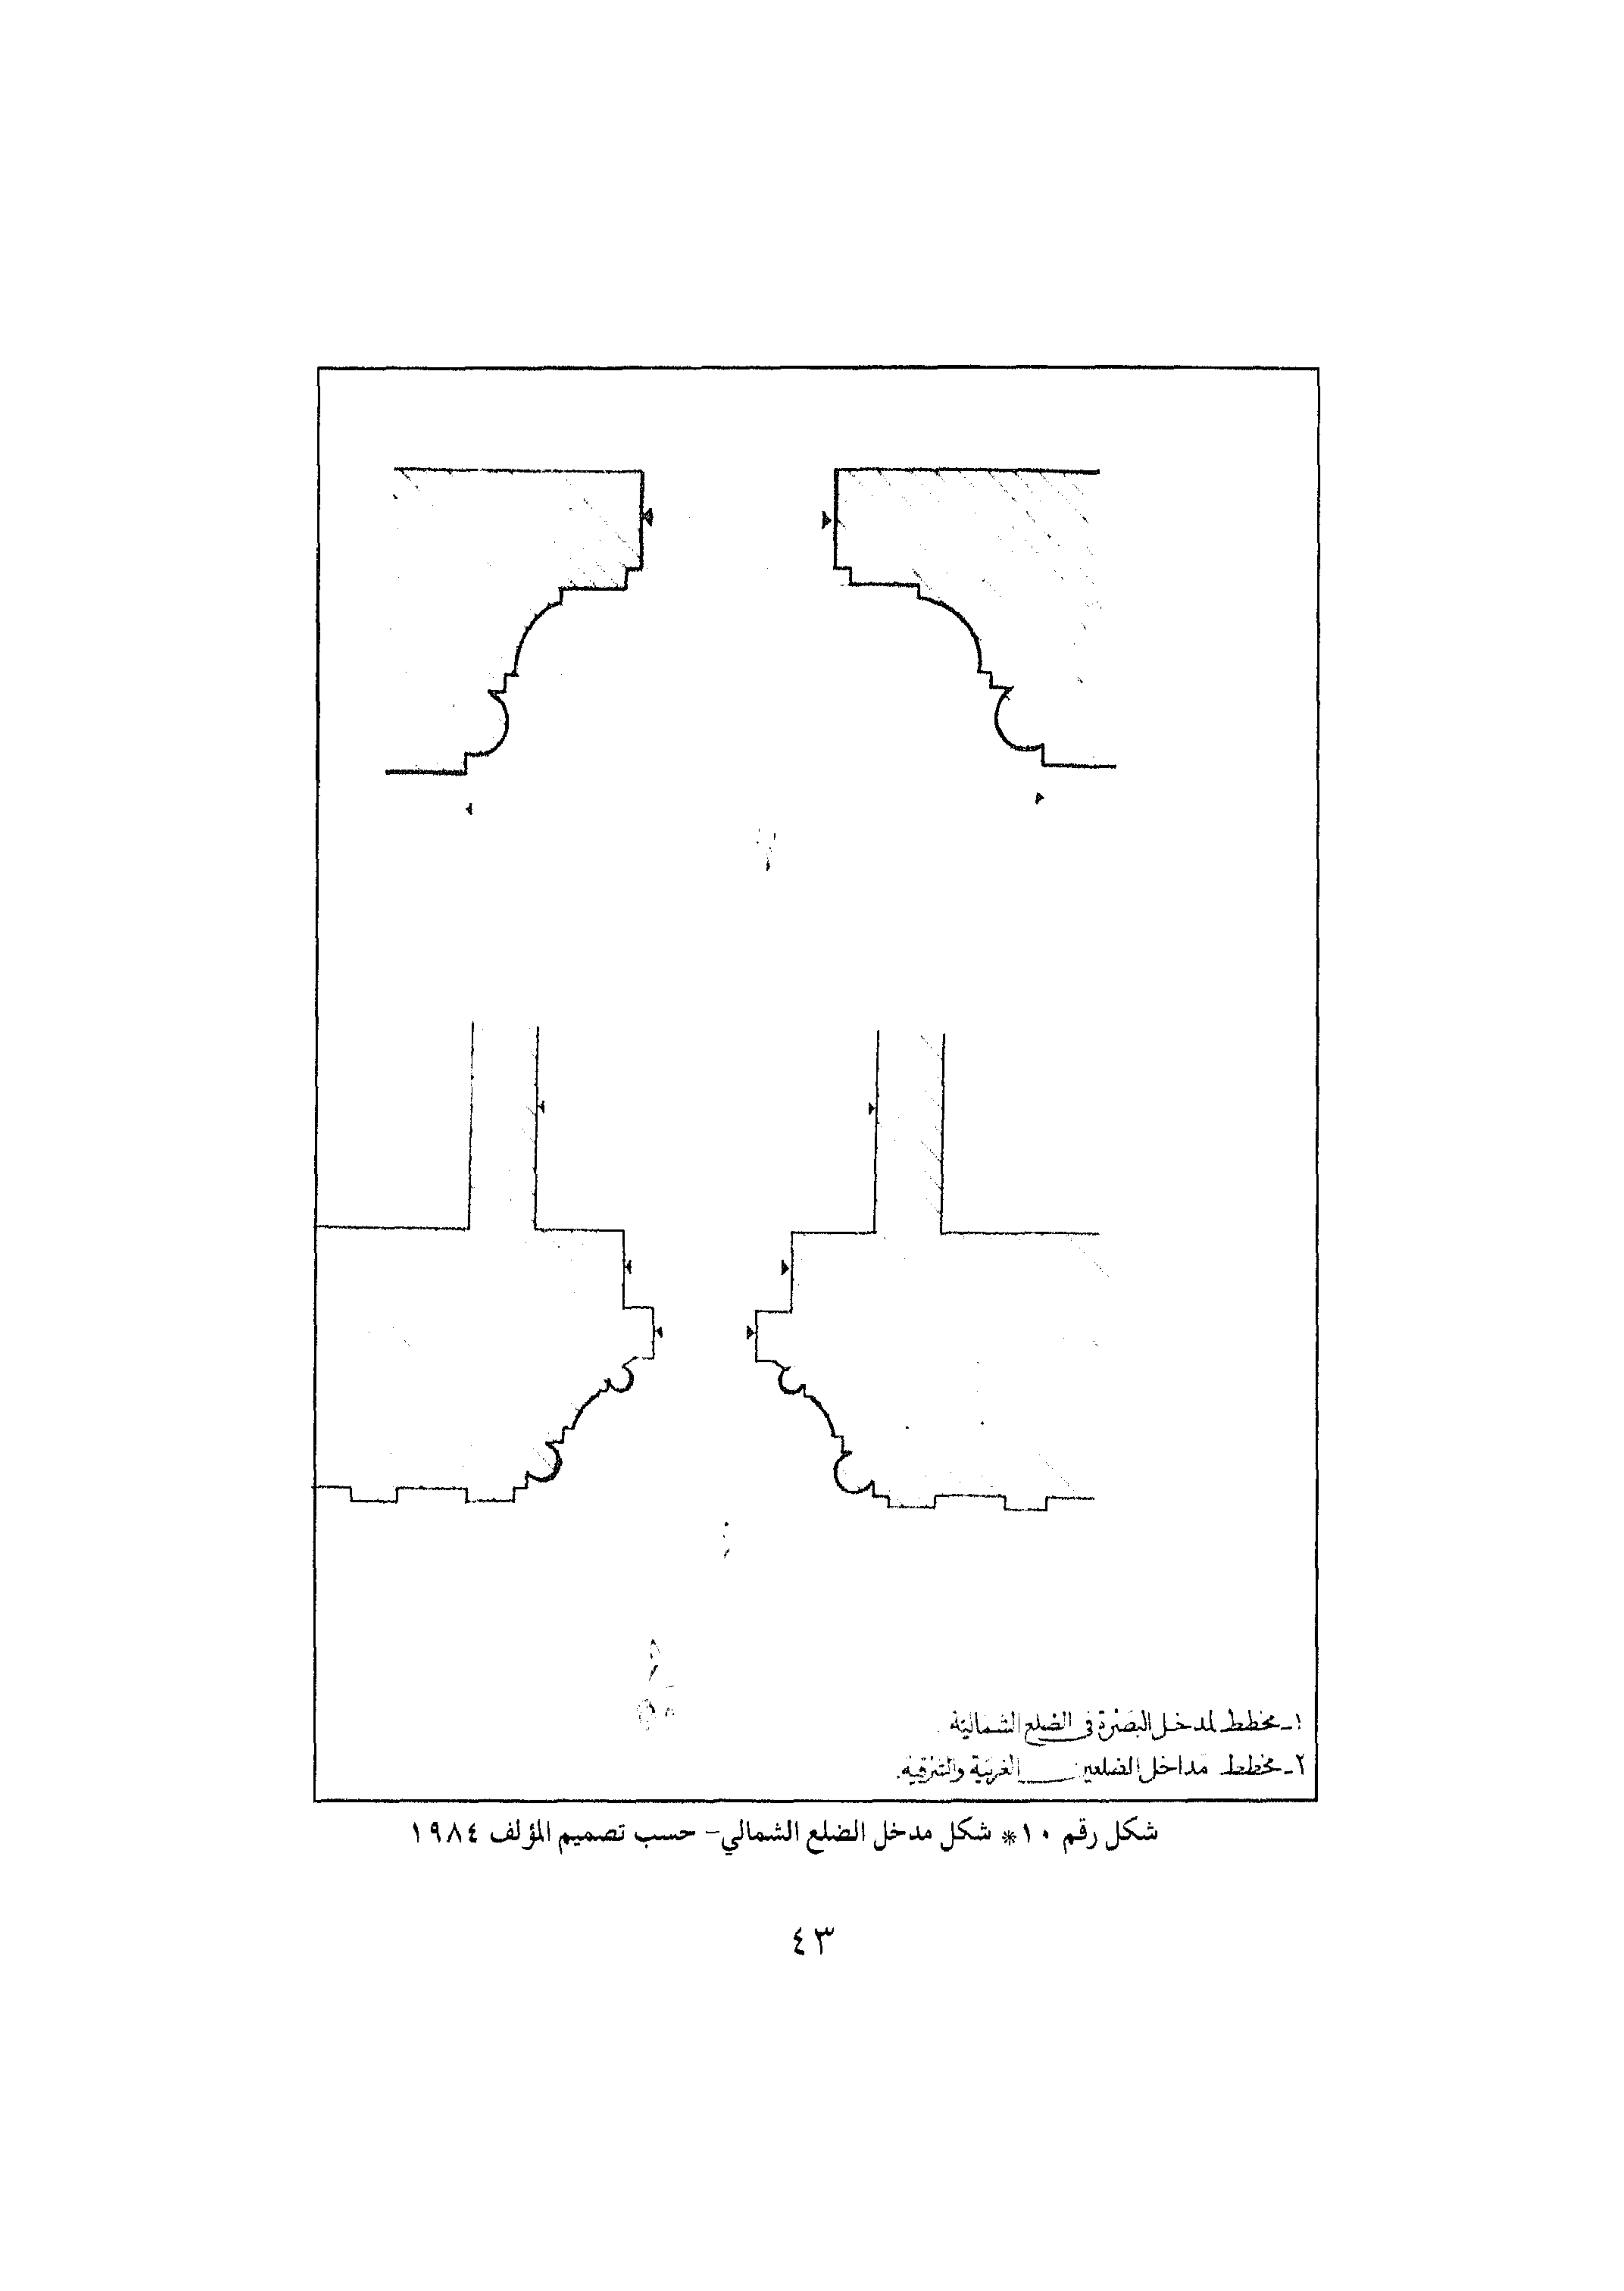 ١ـ مخطط لمدخل البصرة في الضلع الشمالية.
٢ـ مخطط مداخل الضلعين الغربية والشرقية.
شكل رقم ١٠* شكل مدخل الضلع الشمالي- حسب تصميم المؤلف ١٩٨٤
٤٣